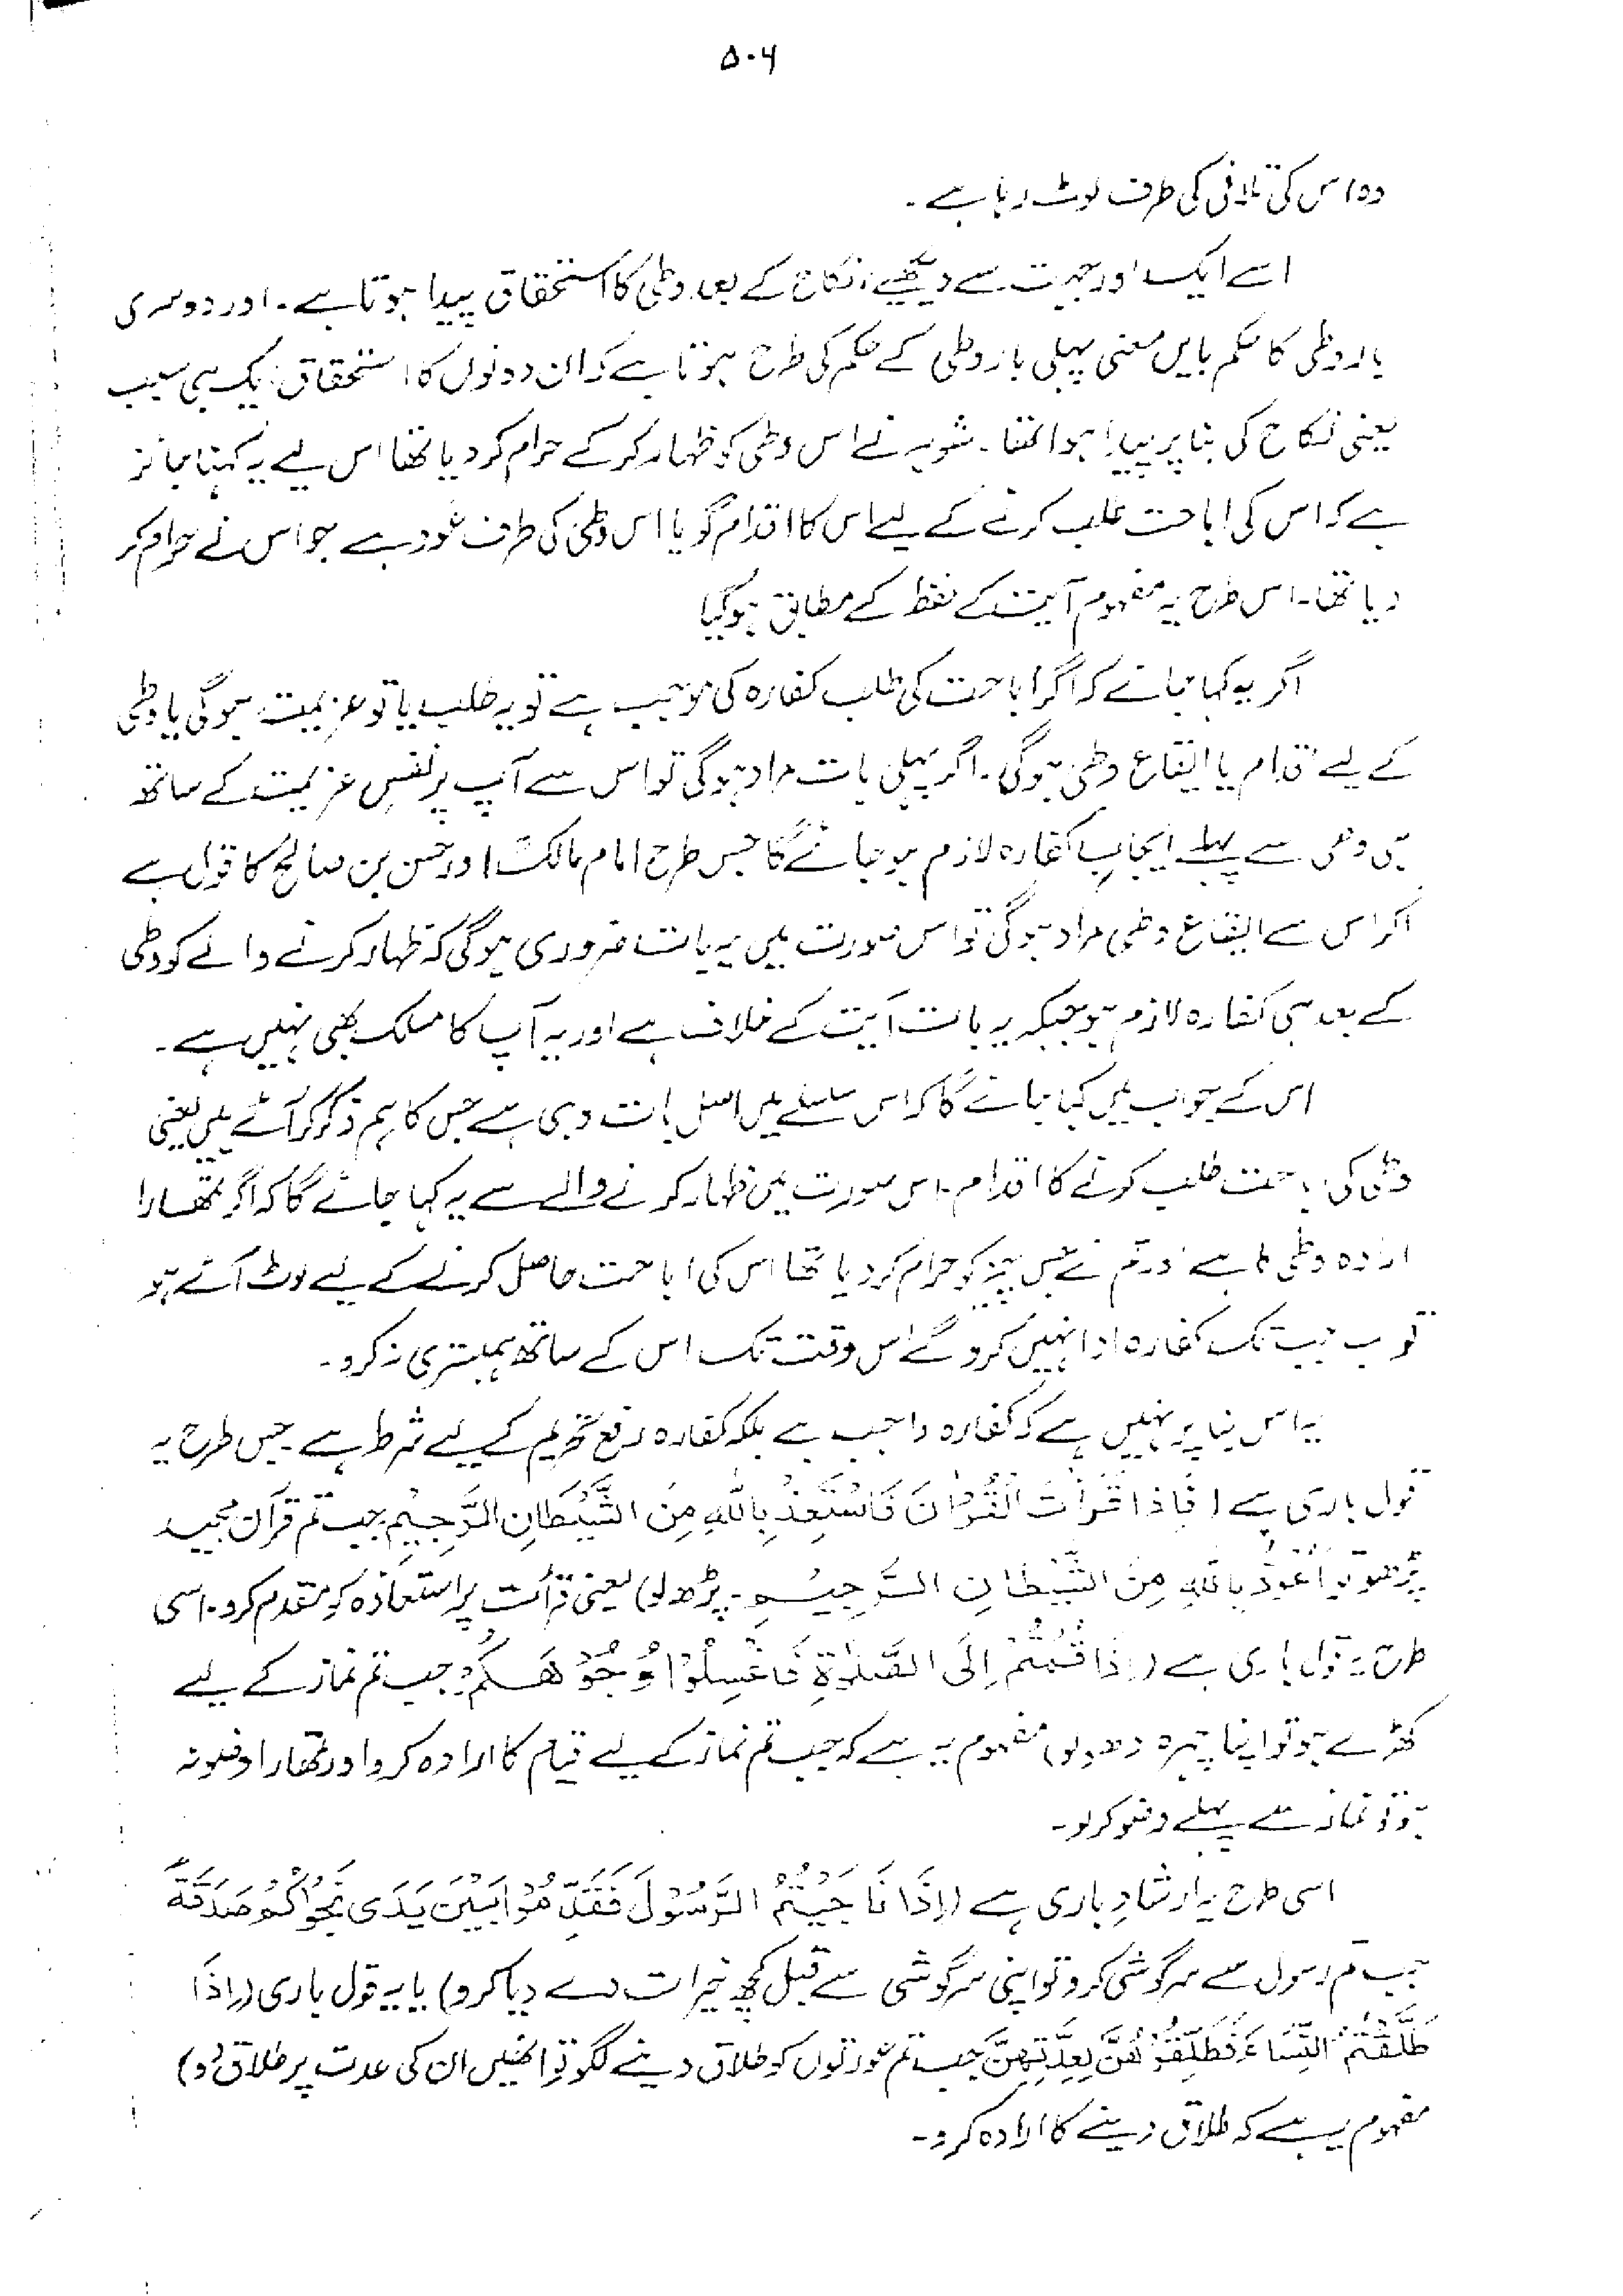 ۵۰۶
وہ اس کی تلافی کی طرف لوٹ رہا ہے۔
اسے ایک اور جہت سے دیکھیے، نکاح کے بعد وطی کا استحقاق پیدا ہوتا ہے۔ اور دوسری
بار وطی کا حکم بایں معنی پہلی بار وطی کے حکم کی طرح ہوتا ہے کہ ان دونوں کا استحقاق ایک ہی سبب
یعنی نکاح کی بنا پر پیدا ہوا تھا۔ شوہر نے اس وطی کو ظہار کر کے حرام کر دیا تھا اس لیے یہ کہنا جائز
ہے کہ اس کی اباحت طلب کرنے کے لیے اس کا اقدام گویا اس وطی کی طرف عود ہے جو اس نے حرام کر
دیا تھا۔ اس طرح یہ مفہوم آیت کے لفظ کے مطابق ہو گیا
اگر یہ کہا جائے کہ اگر اباحت کی طلب کفارہ کی موجب ہے تو یہ طلب یا تو عزیمت ہوگی یا وطی
کے لیے اقدام یا ایقاع وطی ہوگی۔ اگر پہلی بات مراد ہوگی تو اس سے آپ پر نفسِ عزیمت کے ساتھ
ہی وطی سے پہلے ایجابِ کفارہ لازم ہو جائے گا جس طرح امام مالکؒ اور حسن بن صالح کا قول ہے
اگر اس سے ایقاع وطی مراد ہوگی تو اس صورت میں یہ بات ضروری ہوگی کہ ظہار کرنے والے کو وطی
کے بعد ہی کفارہ لازم ہو جبکہ یہ بات آیت کے خلاف ہے اور یہ آپ کا مسلک بھی نہیں ہے۔
اس کے جواب میں کہا جائے گا کہ اس سلسلے میں اصل بات وہی ہے جس کا ہم ذکر کر آئے ہیں یعنی
وطی کی اباحت طلب کرنے کا اقدام۔ اس صورت میں ظہار کرنے والے سے یہ کہا جائے گا کہ اگر تمھارا
ارادہ وطی کا ہے اور تم نے جس چیز کو حرام کر دیا تھا اس کی اباحت حاصل کرنے کے لیے لوٹ آئے ہو
تو اب جب تک کفارہ ادا نہیں کرو گے اس وقت تک اس کے ساتھ ہمبستری نہ کرو۔
یہ اس بنا پر نہیں ہے کہ کفارہ واجب ہے بلکہ کفارہ رفع تحریم کے لیے شرط ہے۔ جس طرح یہ
قول باری ہے (فَاِذَا قَرَأْتَ الْقُرْاٰنَ فَاسْتَعِذْ بِاللّٰهِ مِنَ الشَّيْطَانِ الرَّجِيْمِ۔ جب تم قرآن مجید
پڑھو تو اَعُوْذُ بِاللّٰهِ مِنَ الشَّيْطَانِ الرَّجِيْمِ۔ پڑھ لو) یعنی قرأت پر استعاذہ کو مقدم کرو۔ اسی
طرح یہ قول باری ہے (اِذَا قُمْتُمْ اِلَى الصَّلٰوةِ فَاغْسِلُوْا وُجُوْهَكُمْ۔ جب تم نماز کے لیے
کھڑے ہو تو اپنا چہرہ دھولو) مفہوم یہ ہے کہ جب تم نماز کے لیے قیام کا ارادہ کرو اور تمھارا وضو نہ
ہو تو نماز سے پہلے وضو کر لو۔
اسی طرح یہ ارشادِ باری ہے (اِذَا نَاجَيْتُمُ الرَّسُوْلَ فَقَدِّمُوْا بَيْنَ يَدَىْ نَجْوَاكُمْ صَدَقَةً
جب تم رسول سے سرگوشی کرو تو اپنی سرگوشی سے قبل کچھ خیرات دے دیا کرو) یا یہ قول باری (اِذَا
طَلَّقْتُمُ النِّسَاءَ فَطَلِّقُوْهُنَّ لِعِدَّتِهِنَّ جب تم عورتوں کو طلاق دینے لگو تو انھیں ان کی عدت پر طلاق دو)
مفہوم یہ ہے کہ طلاق دینے کا ارادہ کرو۔